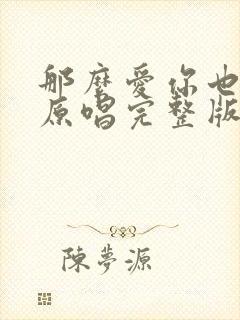 那麼愛你也
原唱完整版
陳夢源